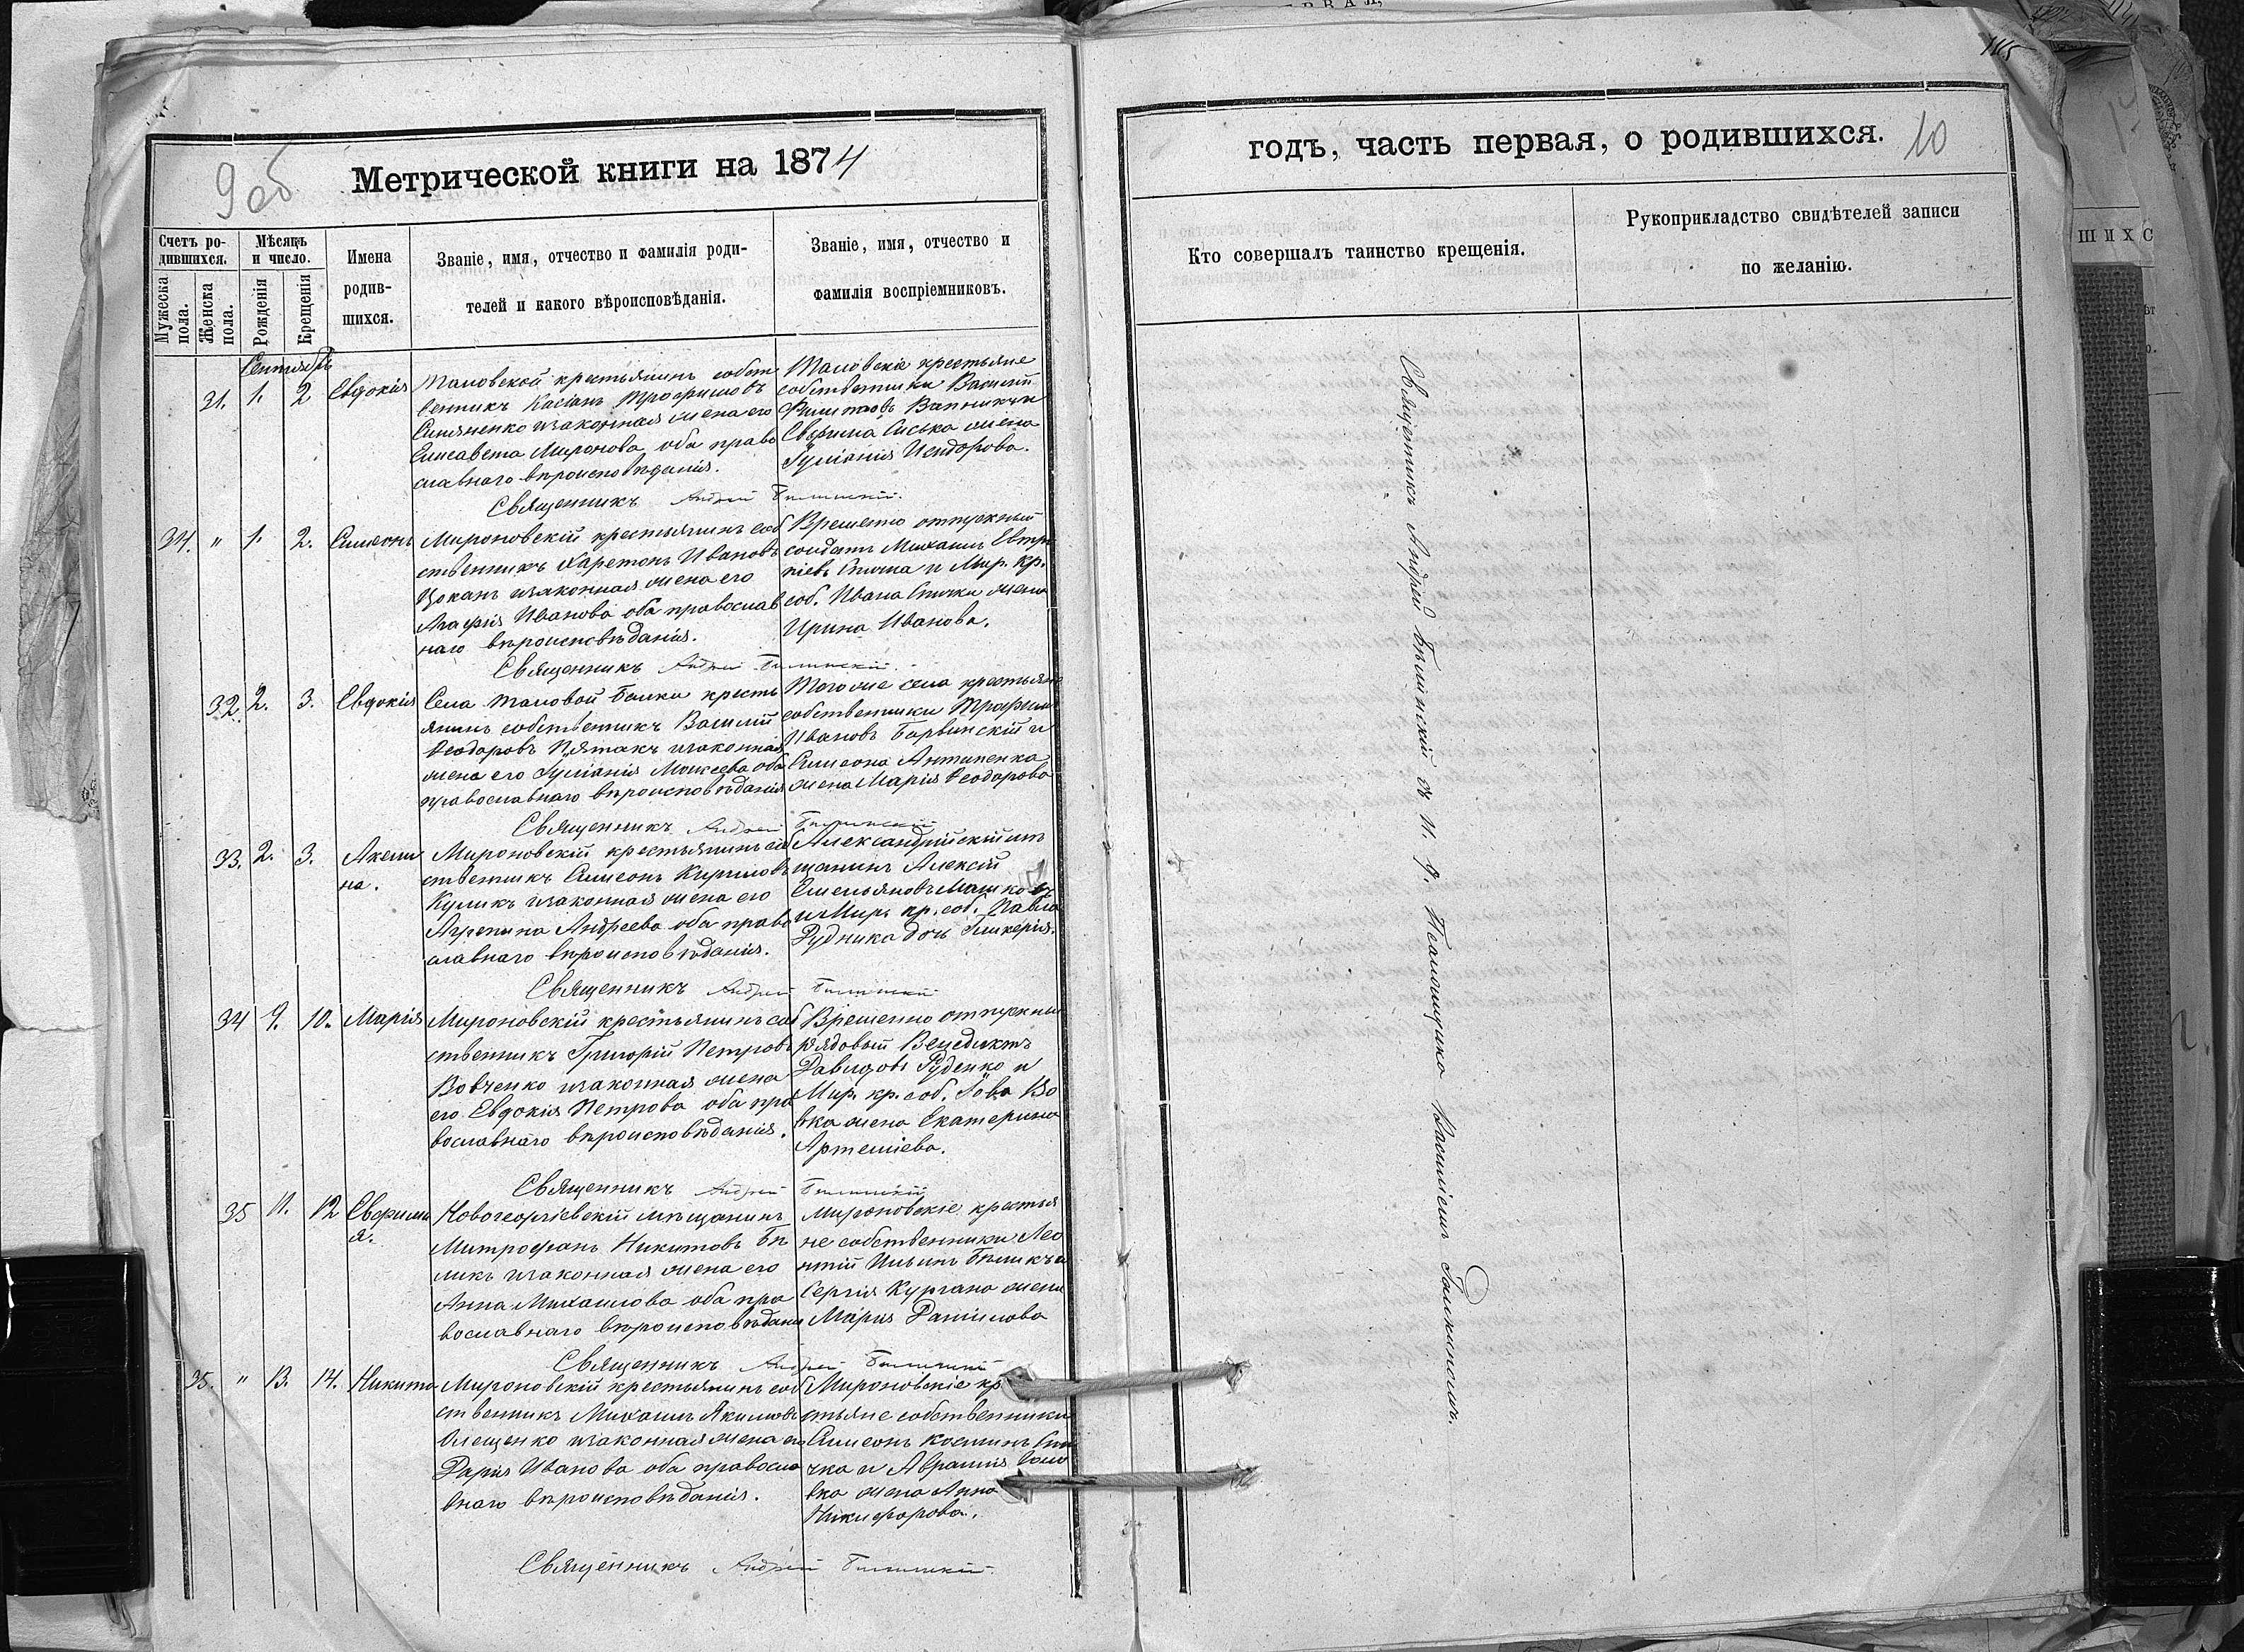 9 об
Метрической книги на 1874
Счетъ ро-
дившихся.
Мужеска
пола.
Женска
пола.
Мѣсяцъ
и число.
Рожденія
Крещенія
Имена
родив-
шихся.
Званіе, имя, отчество и фамилія роди-
телей и какого вѣроисповѣданія.
Званіе, имя, отчество и
фамилія воспріемниковъ.
Сентябрь
31. 1. 2 Евдокія
Таловской крестьянинъ собст
венникъ Касіанъ Трофимовъ
Симяненко изаконная жена его
Елисавета Миронова, оба право
славнаго вѣроисповѣданія.
Таловскіе крестьяне
собственники Василій
Филиповъ Вапникъ и
Ефрима Сиська жена
Іуліанія Исидорова.
Священникъ Андрей Бѣлинскій.
34. " 1. 2. Симеонъ
Мироновскій крестьянинъ соб
ственникъ Харетонъ Ивановъ
Цоканъ изаконная жена его
Агафія Иванова оба православ
наго вѣроисповѣданія.
Временно отпускный
солдатъ Михаилъ Евтро
піевъ Спичка и Мир. кр.
соб. Ивана Спички жена
Ирина Иванова.
Священникъ Андрей Бѣлинскій.
32. 2. 3. Евдокія
Села Таловой Балки кресть
янинъ собственникъ Василій
Ѳеодоровъ Пятакъ изаконная
жена его Іуліанія Моисеева оба
православнаго вѣроисповѣданія
Того же села крестьяне
собственники Трофимъ
Ивановъ Барвинскій и
Симеона Антипенка
жена Марія Ѳеодорова
Священникъ Андрей Бѣлинскій
33. 2. 3. Акели
на.
Мироновскій крестьянинъ соб
ственникъ Симеонъ Кириловъ
Куликъ изаконная жена его
Агрепина Андреева оба право
славнаго вѣроисповѣданія.
Александрійскій мѣ
щанинъ Алексій
Емельяновъ Машковъ
и Мир. кр. соб. Павла
Рудника дочь Гликерія.
Священникъ Андрей Бѣлинскій
34 9. 10. Марія
Мироновскій крестьянинъ соб
ственникъ Григорій Петровъ
Вовченко изаконная жена
его Евдокія Петрова оба пра
вославнаго вѣроисповѣданія.
Временно отпускный
рядовый Венедиктъ
Давидовъ Руденко и
Мир. кр. соб. Іова Во
вка жена Екатерина
Артеміева.
Священникъ Андрей Бѣлинскій
35 11. 12 Евфимі
я.
Новогеоргіевскій мѣщанинъ
Митрофанъ Никитовъ Бѣ
ликъ изаконная жена его
Анна Михаилова оба пра
вославнаго вѣроисповѣдані
Мироновскіе крестья
не собственники Лео
нтій Ильинъ Бѣликъ и
Сергія Кургана жена
Марія Даніилова
Священникъ Андрей Бѣлинскій
35. " 13. 14. Никита
Мироновскій крестьянинъ соб
ственникъ Михаилъ Якимовъ
Олещенко изаконная жена его
Дарія Иванова оба правосла
внаго вѣроисповѣданія.
Мироновскіе кр
стьяне собственники
Симеонъ Косминъ Спи
чка и Аврамія Голо
вка жена Анна
Никифорова.
Священникъ Андрей Бѣлинскій.
115
годъ, часть первая, о родившихся. 10
Кто совершалъ таинство крещенія.
Рукоприкладство свидѣтелей записи
по желанію.
Священникъ Андрей Бѣлинскій съ и. д. Псаломщика Василіемъ
шихс